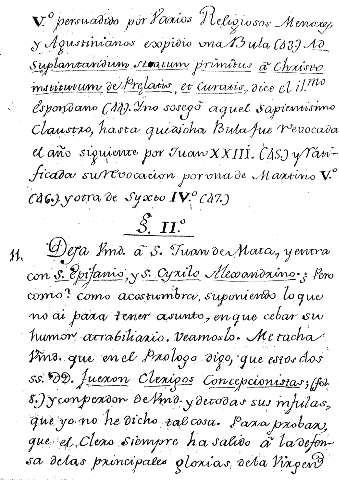 V.º persuadido por Varios Religiosos Menores,
y Agustinianos expidio una Bula (43) Ad
suplantandum statum primitus à Christo
institutum de Prelatis, et Curatis, dice el il.mo
Espondano (44). Y no sosegò aquel Sapientissimo
Claustro, hasta que dicha Bula fue revocada
el año siguiente por Juan XXIII. (45) y rati-
ficada su revocacion por una de Martino V.º
(46.) y otra de Syxto IV.º (47.)
§. II.º
11. Deja Vmd. à S. Juan de Mata, y entra
con S. Epifanio, y S. Cyrilo Alexandrino. ¿Pero
como? como acostumbra, suponiendo lo que
no ai para tener asunto, en que cebar su
humor atrabiliario. Veamoslo. Me tacha
Vmd. que en el Prologo digo, que estos dos
SS. DD. fueron Clerigos Concepcionistas; (fol.
8.) y con perdon de Vmd. y de todas sus infulas,
que yo no he dicho tal cosa. Para probar,
que el Clero siempre ha salido à la defen-
sa de las principales glorias de la Virgen